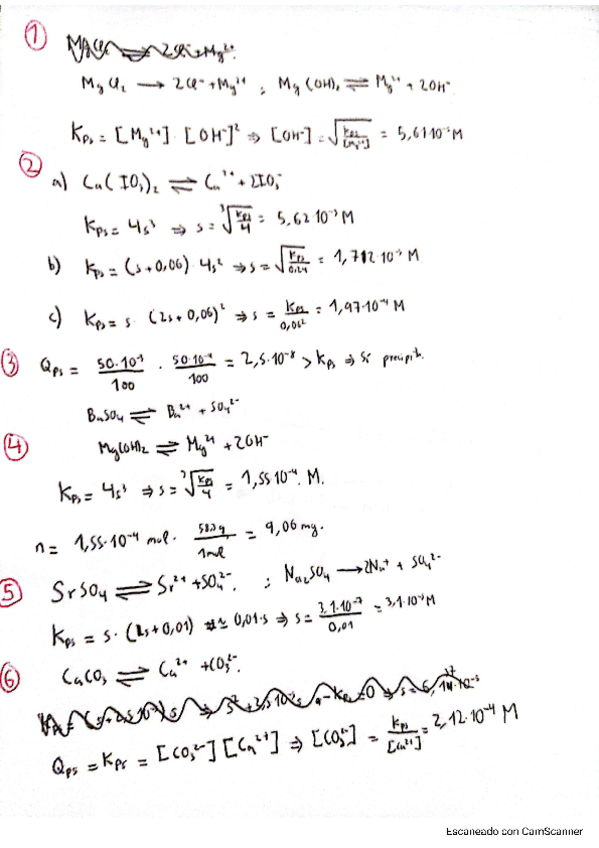 1
MgCl₂ → 2Cl⁻ + Mg²⁺ ; Mg(OH)₂ ⇌ Mg²⁺ + 2OH⁻
Kps = [Mg²⁺] · [OH⁻]² ⇒ [OH⁻] = √(Kps/[Mg²⁺]) = 5,61·10⁻⁵ M
2
a) Ca(IO₃)₂ ⇌ Ca²⁺ + 2IO₃⁻
Kps = 4s³ ⇒ s = ³√(Kps/4) = 5,62·10⁻³ M
b) Kps = (s+0,06) · 4s² ⇒ s = √(Kps/0,24) = 1,712·10⁻³ M
c) Kps = s · (2s+0,06)² ⇒ s = Kps/0,06² = 1,97·10⁻⁴ M
3 Qps = 50·10⁻³/100 · 50·10⁻⁴/100 = 2,5·10⁻⁸ > Kps ⇒ Sí precipit.
BaSO₄ ⇌ Ba²⁺ + SO₄²⁻
4 Mg(OH)₂ ⇌ Mg²⁺ + 2OH⁻
Kps = 4s³ ⇒ s = ³√(Kps/4) = 1,55·10⁻⁴ M.
n = 1,55·10⁻⁴ mol · /1mol = 9,06 mg.
5 SrSO₄ ⇌ Sr²⁺ + SO₄²⁻ ; Na₂SO₄ → 2Na⁺ + SO₄²⁻
Kps = s · (s+0,01) ≈ 0,01·s ⇒ s = 3,1·10⁻⁷/0,01 = 3,1·10⁻⁵ M
6 CaCO₃ ⇌ Ca²⁺ + CO₃²⁻
Qps = Kps = [CO₃²⁻][Ca²⁺] ⇒ [CO₃²⁻] = Kps/[Ca²⁺] = 2,12·10⁻⁴ M
Escaneado con CamScanner